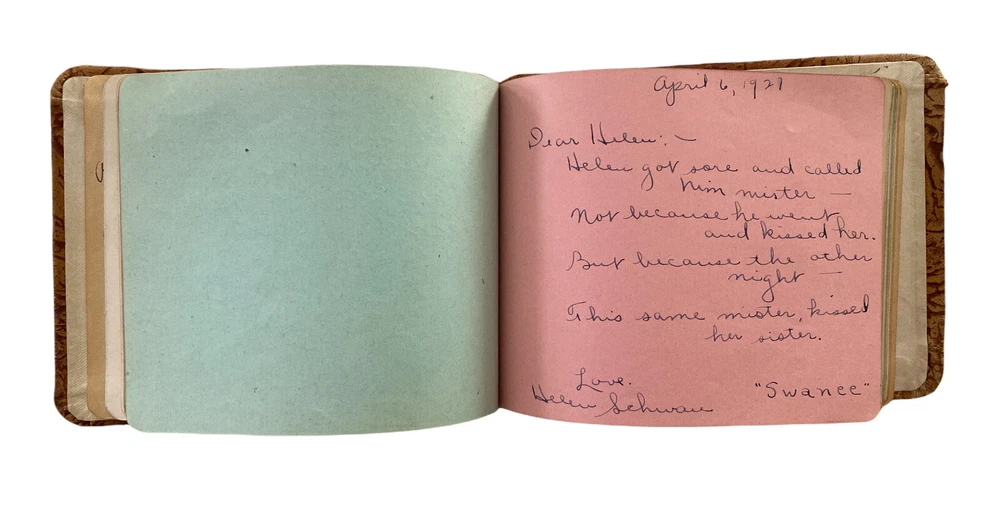 April 6, 1927
Dear Helen:-
Helen got sore and called
him mister —
Not because he went
and kissed her.
But because the other
night —
This same mister, kissed
her sister.
Love.
Helen Schwan
"Swanee"